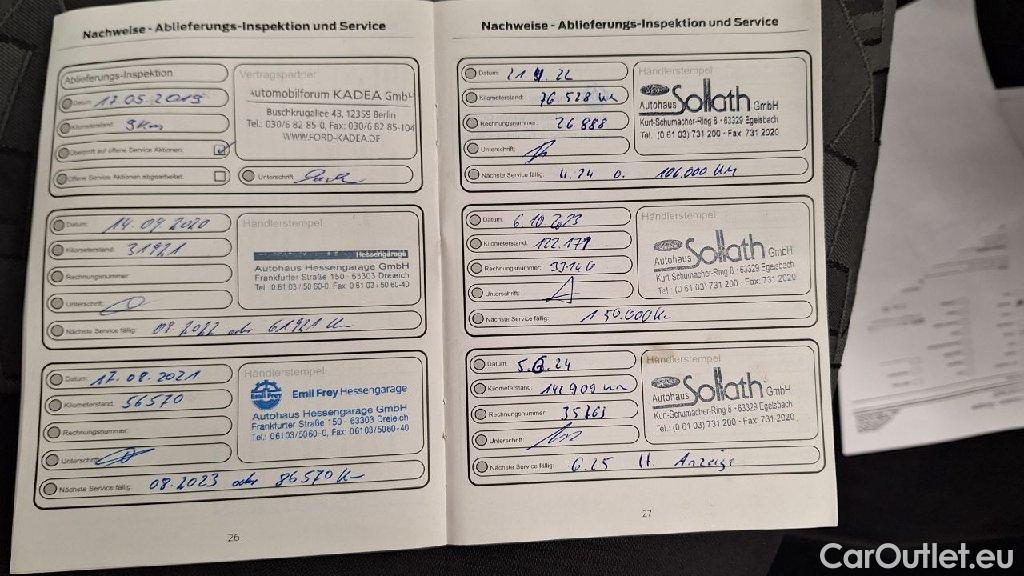 Nachweise - Ablieferungs-Inspektion und Service
Ablieferungs-Inspektion
Datum: 17.05.2019
Kilometerstand: 9km
Übertritt auf offene Service Aktionen:
Offene Service Aktionen abgearbeitet:
Vertragspartner
Automobilforum KADEA GmbH
Buschkrugallee 43, 12359 Berlin
Tel.: 030/6 82 85-0, Fax: 030/6 82 85-104
WWW.FORD-KADEA.DE
Unterschrift:
Datum: 14.09.2020
Kilometerstand: 31921
Rechnungsnummer:
Unterschrift:
Nächste Service fällig: 09.2022 oder 61921 km
Händlerstempel
Hessengarage
Autohaus Hessengarage GmbH
Frankfurter Straße 150 · 63303 Dreieich
Tel.: 0 61 03 / 50 60-0, Fax: 0 61 03 / 50 60-40
Datum: 17.08.2021
Kilometerstand: 56570
Rechnungsnummer:
Unterschrift:
Nächste Service fällig: 08.2023 oder 86570 km
Händlerstempel
Emil Frey Hessengarage
Autohaus Hessengarage GmbH
Frankfurter Straße 150 · 63303 Dreieich
Tel.: 06103/5060-0, Fax: 06103/5060-40
26
Nachweise - Ablieferungs-Inspektion und Service
Datum: 22
Kilometerstand: 76 528 km
Rechnungsnummer: 26888
Unterschrift:
Nächste Service fällig: 4.24 o. 106.000 km
Händlerstempel
Autohaus Sollath GmbH
Kurt-Schumacher-Ring 8 · 63329 Egelsbach
Tel. (0 61 03) 731 200 · Fax 731 2020
Datum: 6.10.2023
Kilometerstand: 122.179
Rechnungsnummer:
Unterschrift:
Nächste Service fällig: 150.000 km
Händlerstempel
Autohaus Sollath GmbH
Kurt-Schumacher-Ring 8 · 63329 Egelsbach
Tel.: (0 61 03) 731 200 · Fax: 731 2020
Datum: 24
Kilometerstand: 141 909 km
Rechnungsnummer:
Unterschrift:
Nächste Service fällig: 6.25 lt. Anzeige
Händlerstempel
Autohaus Sollath GmbH
Kurt-Schumacher-Ring 8 · 63329 Egelsbach
Tel.: (0 61 03) 731 200 · Fax: 731 2020
27
CarOutlet.eu